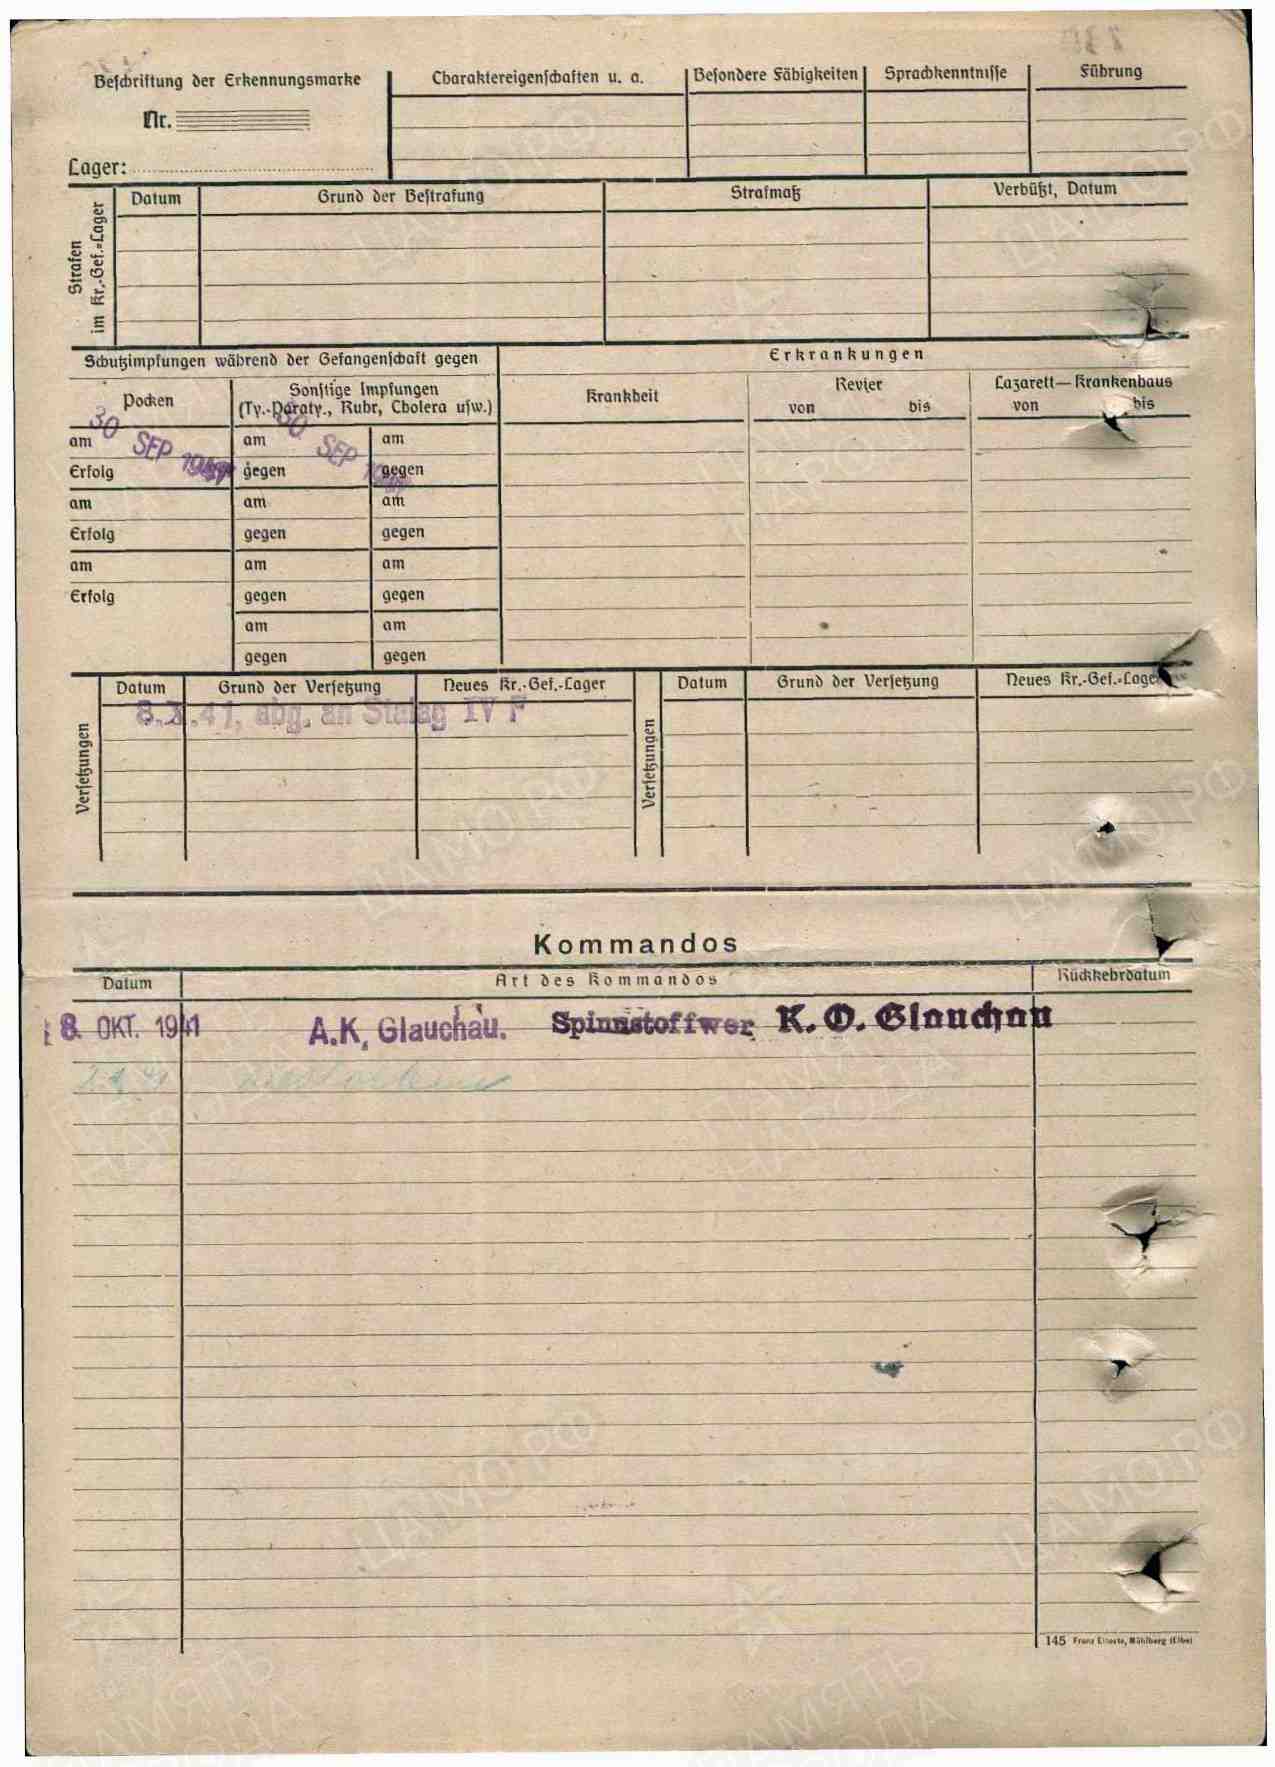 Beschriftung der Erkennungsmarke
Nr.
Lager:
Charaktereigenschaften u. a.
Besondere Fähigkeiten
Sprachkenntnisse
Führung
Strafen im Kr.-Gef.-Lager
Datum
Grund der Bestrafung
Strafmaß
Verbüßt, Datum
Schutzimpfungen während der Gefangenschaft gegen
Erkrankungen
Pocken
Sonstige Impfungen
(Ty.-Paraty., Ruhr, Cholera usw.)
Krankheit
Revier
von bis
Lazarett—Krankenhaus
von bis
30 SEP 1941
30 SEP 1941
am am am
Erfolg gegen gegen
am am am
Erfolg gegen gegen
am am am
Erfolg gegen gegen
am am
gegen gegen
Versetzungen
Datum Grund der Versetzung Neues Kr.-Gef.-Lager
8.X.41, abg. an Stalag IV F
Versetzungen
Datum Grund der Versetzung Neues Kr.-Gef.-Lager
Kommandos
Datum Art des Kommandos Rückkehrdatum
8. OKT. 1941 A.K, Glauchau. Spinnstoffwer K. O. Glauchau
145 Franz Mühlberg (Elbe)
ЦАМО РФ
ПАМЯТЬ
НАРОДА